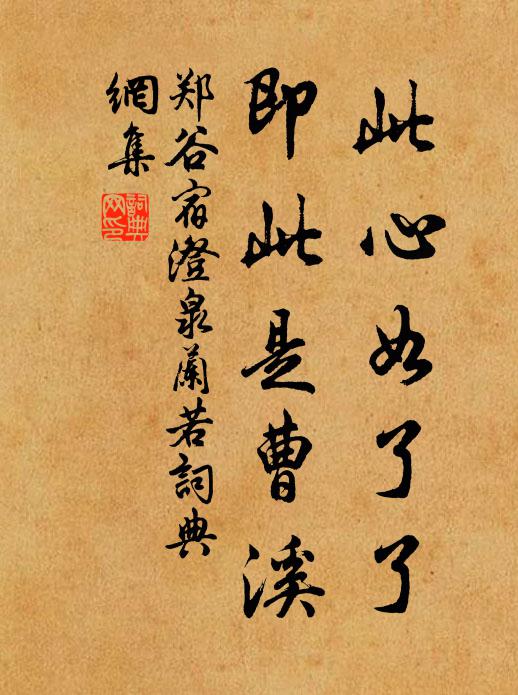 此心如了了
即此是曹溪
郑谷宿澄泉蘭若詞典
網集
詞典网印